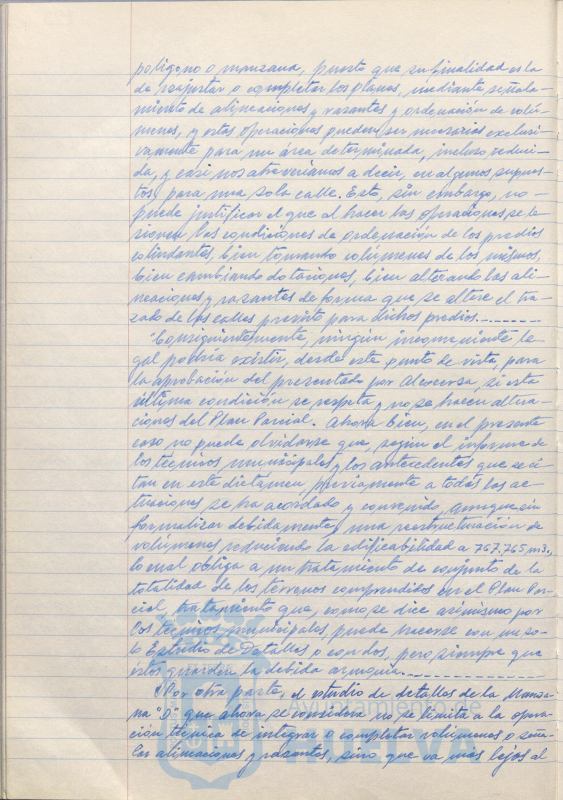 polígono o manzana, puesto que su finalidad es la
de reajustar o completar los planes, mediante señala-
miento de alineaciones y rasantes y ordenación de volú-
menes, y estas operaciones pueden ser necesarias exclusi-
vamente para un área determinada, incluso reduci-
da, y casi nos atreveríamos a decir, en algunos supues-
tos, para una sola calle. Esto, sin embargo, no
puede justificar el que al hacer las operaciones, se le-
sionen las condiciones de ordenación de los predios
colindantes, bien tomando volúmenes de los mismos,
bien cambiando dotaciones, bien alterando las ali-
neaciones y rasantes de forma que se altere el tra-
zado de las calles previsto para dichos predios.
"Consiguientemente, ningún inconveniente le-
gal podría existir, desde este punto de vista, para
la aprobación del presentado por si esta
última condición se respeta y no se hacen altera-
ciones del Plan Parcial. Ahora bien, en el presente
caso no puede olvidarse que, según el informe de
los técnicos municipales y los antecedentes que se ci-
tan en este dictamen, previamente a todas las ac-
tuaciones se ha acordado y convenido, aunque sin
formalizar debidamente, una reestructuración de
volúmenes reduciendo la edificabilidad a 767.765 m3.,
lo cual obliga a un tratamiento de conjunto de la
totalidad de los terrenos comprendidos en el Plan Par-
cial, tratamiento que, como se dice asimismo por
los técnicos municipales, puede hacerse con un so-
lo Estudio de Detalles o con dos, pero siempre que
éstos guarden la debida armonía.
"Por otra parte, el estudio de detalles de la Manza-
na "D" que ahora se considera no se limita a la opera-
ción técnica de integrar o completar volúmenes o seña-
lar alineaciones y rasantes, sino que va más lejos al
Ayuntamiento de
HUELVA